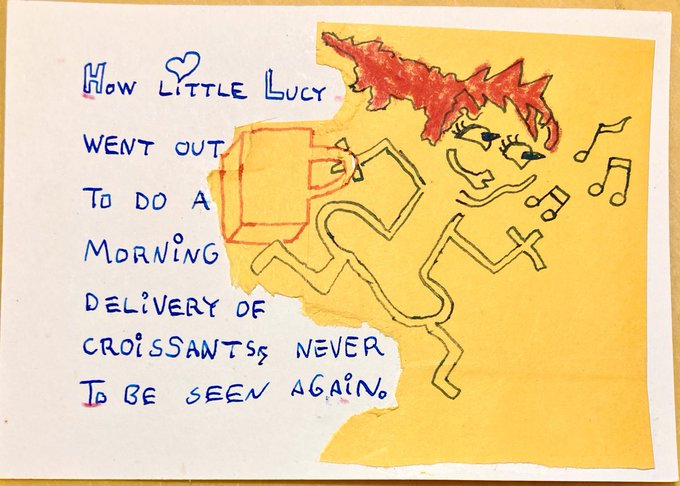 How LiTTLE LUCY
WENT OUT
To DO A
MORNiNG
DELiVERY OF
CROiSSANTS, NEVER
To BE SEEN AGAiN.